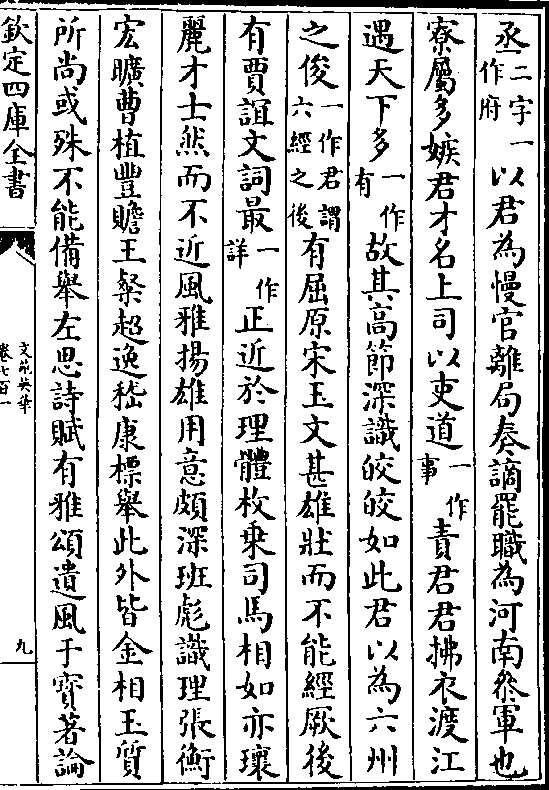 丞二字一作府以君為慢官離局奏謫罷職為河南叅軍也
寮屬多嫉君才名上司以吏道一作事責君君拂衣渡江
遇天下多一作有故其高節深識皎皎如此君以為六州
之俊一作君謂六經之後有屈原宋玉文甚雄壯而不能經厥後
有賈誼文詞最一作詳正近於理體枚乗司馬相如亦瓌
麗才士然而不近風雅揚雄用意頗深班彪識理張衡
宏曠曹植豐贍王粲超逸嵇康標舉此外皆金相玉質
所尚或殊不能備舉左思詩賦有雅頌遺風干寳著論
欽定四庫全書
文苑英華
卷七百一
九